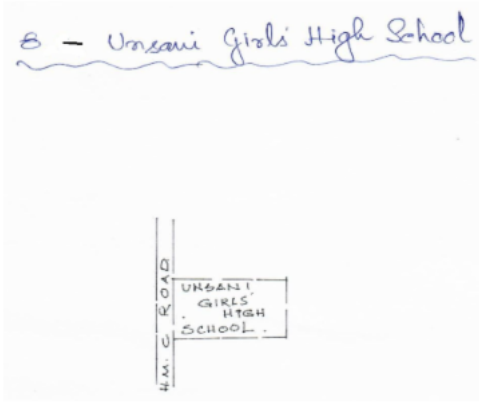 8 - Unsani Girls' High School
H.M.C ROAD
UNSANI
GIRLS'
HIGH
SCHOOL.